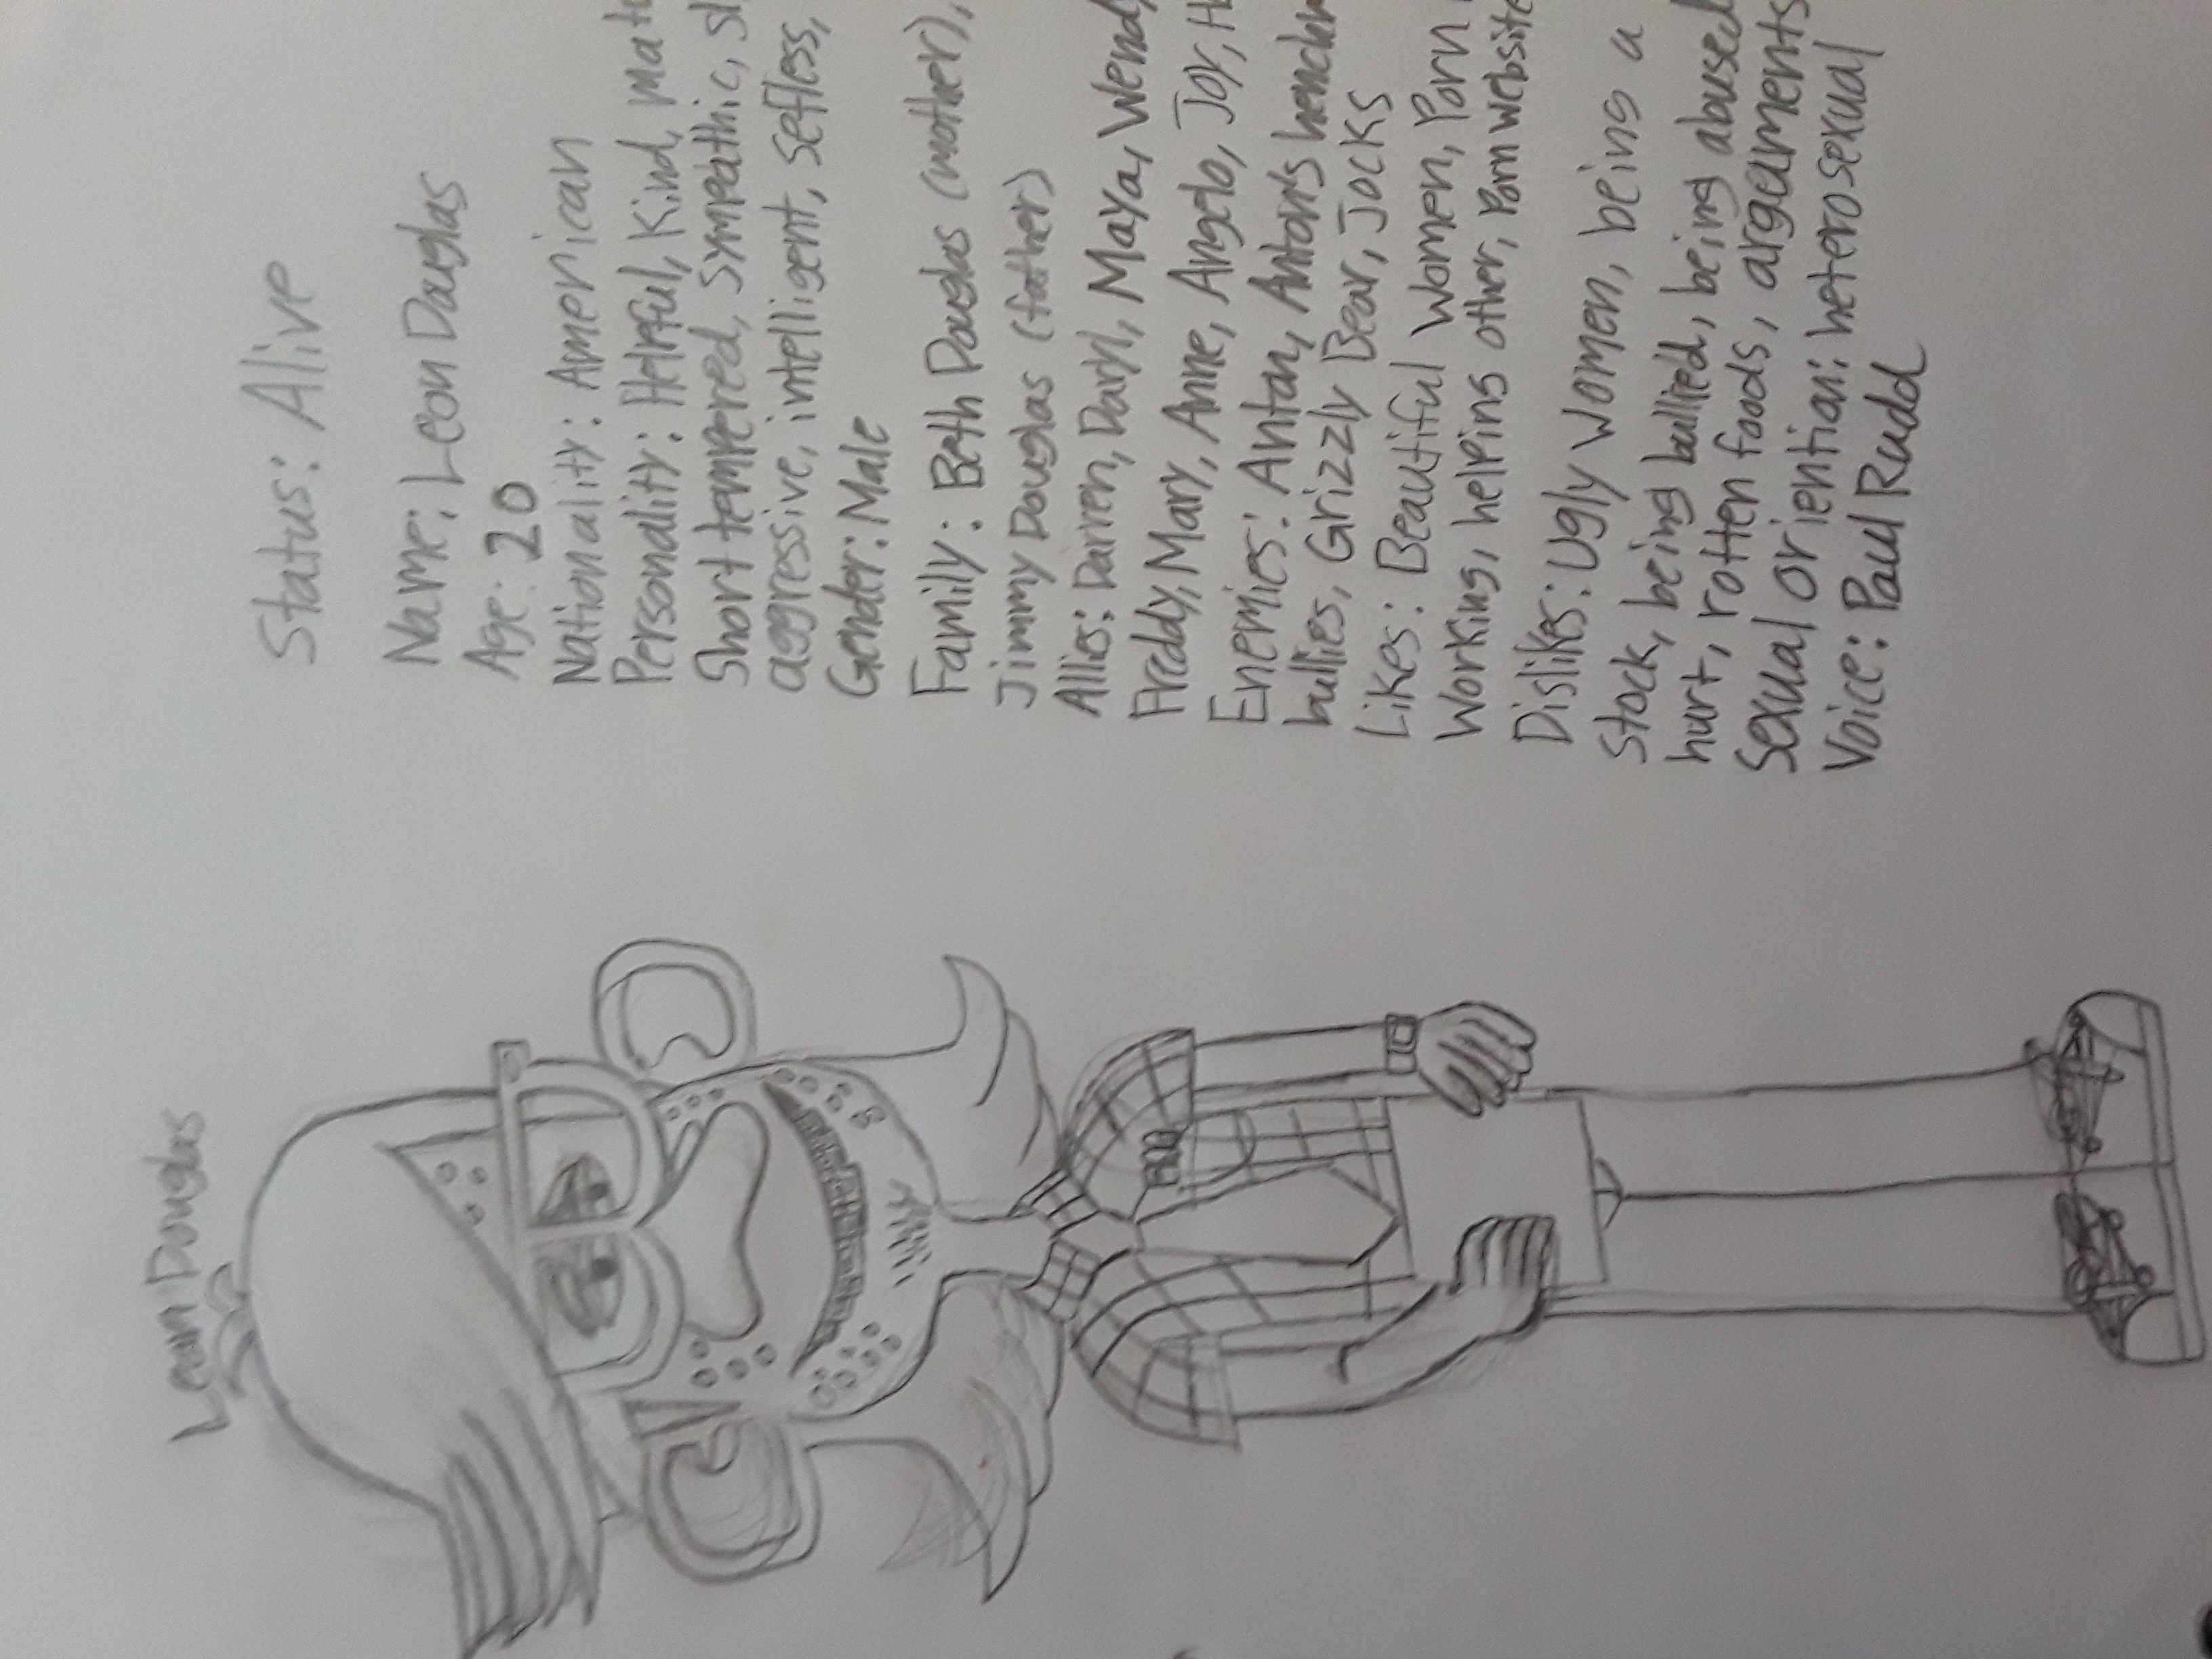 Leon Douglas
Status: Alive
Name: Leon Douglas
Age: 20
Nationality: American
Personality: Helpful, Kind,
Short tempered, Sympathic,
aggressive, intelligent, Selfless,
Gender: Male
Family: Beth Douglas (mother),
Jimmy Douglas (father)
Allies: Darren, Daryl, Maya,
Freddy, Mary, Anne, Angelo, Joy,
Enemies: Anton, Anton's
bullies, Grizzly Bear, Jocks
Likes: Beautiful Women, Porn
Working, helping other, Porn website
Dislikes: Ugly Women, being a
Stock, being bullied, being abused
hurt, rotten foods, argeuments
Sexual orientian: heterosexual
Voice: Paul Rudd